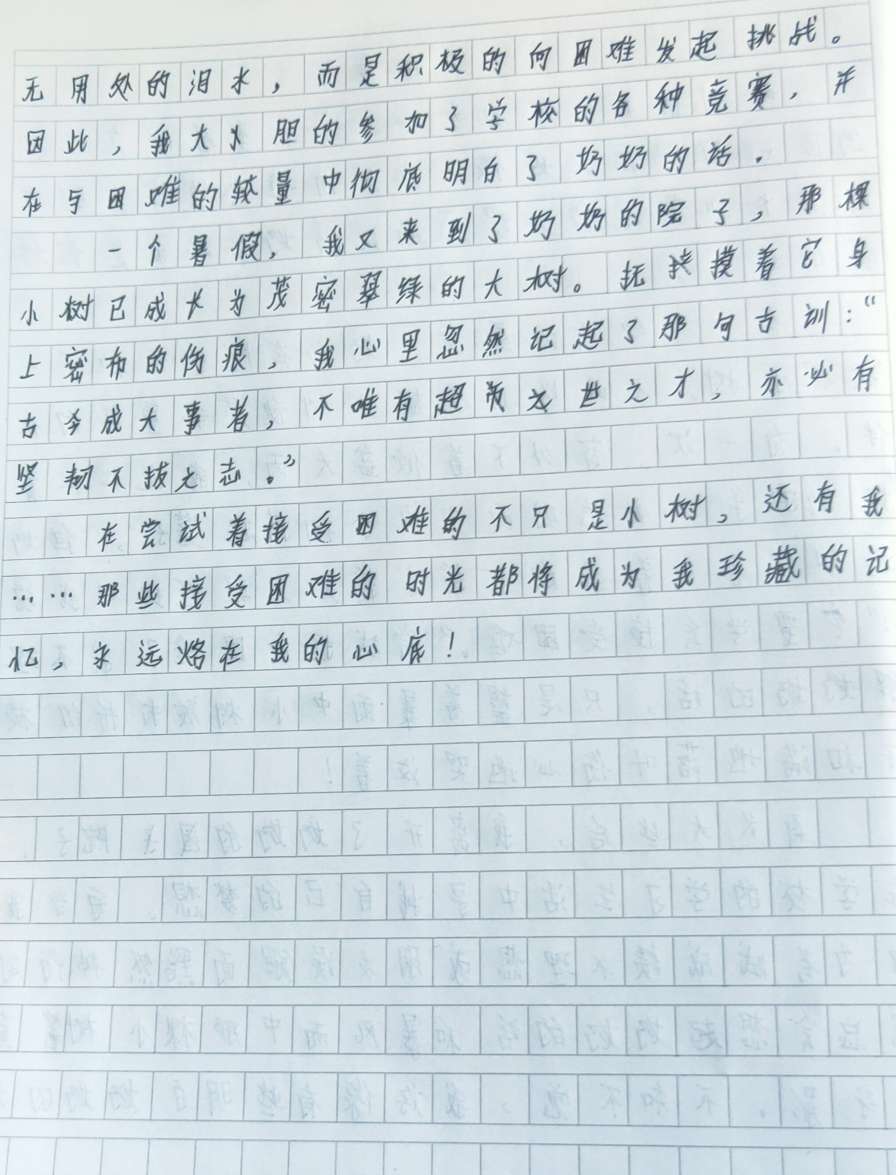 无用处的泪水，而是积极的向困难发起挑战。
因此，我大大胆的参加了学校的各种竞赛，并
在与困难的较量中彻底明白了奶奶的话。
一个暑假，我又来到了奶奶的院子，那棵
小树已成长为茂密翠绿的大树。抚摸着它身
上密布的伤痕，我心里忽然记起了那句古训：“
古今成大事者，不唯有超世之才，亦必有
坚韧不拔之志。”
在尝试着接受困难的不只是小树，还有我
……那些接受困难的时光都将成为我珍藏的记
忆，永远烙在我的心底！